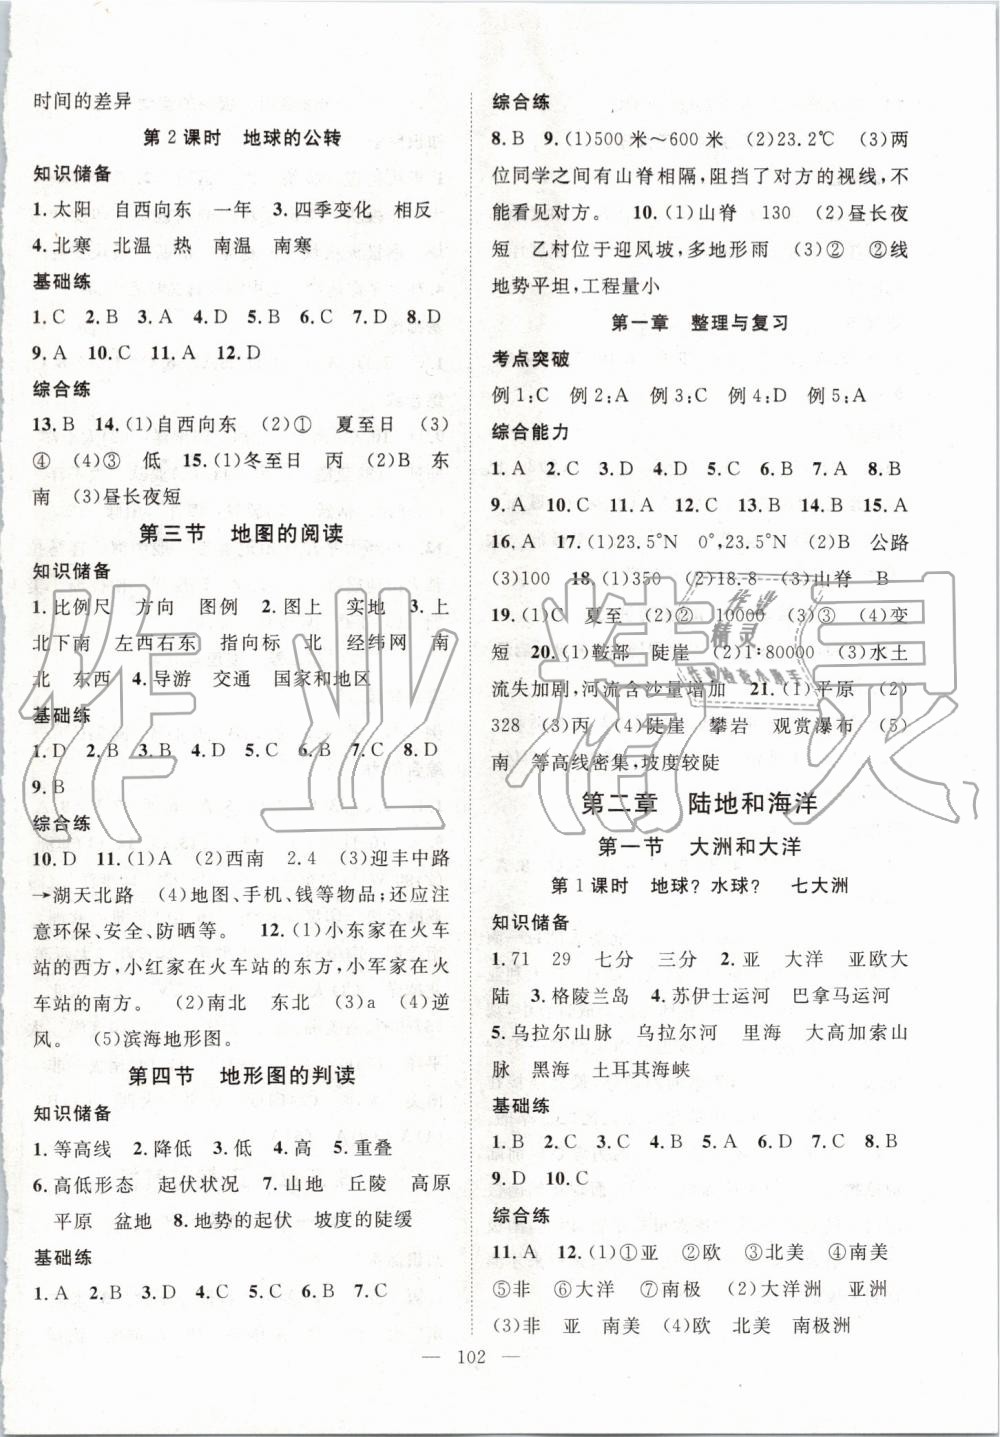 时间的差异
第2课时 地球的公转
知识储备
1.太阳 自西向东 一年 3.四季变化 相反
4.北寒 北温 热 南温 南寒
基础练
1.C 2.B 3.A 4.D 5.B 6.C 7.D 8.D
9.A 10.C 11.A 12.D
综合练
13.B 14.(1)自西向东 (2)① 夏至日 (3)
④ (4)③ 低 15.(1)冬至日 丙 (2)B 东
南 (3)昼长夜短
第三节 地图的阅读
知识储备
1.比例尺 方向 图例 2.图上 实地 3.上
北下南 左西右东 指向标 北 经纬网 南
北 东西 4.导游 交通 国家和地区
基础练
1.D 2.B 3.B 4.D 5.C 6.B 7.C 8.D
9.B
综合练
10.D 11.(1)A (2)西南 2.4 (3)迎丰中路
→湖天北路 (4)地图、手机、钱等物品;还应注
意环保、安全、防晒等。 12.(1)小东家在火车
站的西方,小红家在火车站的东方,小军家在火
车站的南方。 (2)南北 东北 (3)a (4)逆
风。 (5)滨海地形图。
第四节 地形图的判读
知识储备
1.等高线 2.降低 3.低 4.高 5.重叠
6.高低形态 起伏状况 7.山地 丘陵 高原
平原 盆地 8.地势的起伏 坡度的陡缓
基础练
1.A 2.B 3.D 4.C 5.C 6.B 7.C
综合练
8.B 9.(1)500米～600米 (2)23.2℃ (3)两
位同学之间有山脊相隔,阻挡了对方的视线,不
能看见对方。 10.(1)山脊 130 (2)昼长夜
短 乙村位于迎风坡,多地形雨 (3)② ②线
地势平坦,工程量小
第一章 整理与复习
考点突破
例1:C 例2:A 例3:A 例4:D 例5:A
综合能力
1.A 2.C 3.D 4.D 5.C 6.B 7.A 8.B
9.A 10.C 11.A 12.C 13.B 14.B 15.A
16.A 17.(1)23.5°N 0°,23.5°N (2)B 公路
(3)100 18.(1)350 (2)18.8 (3)山脊 B
19.(1)C 夏至 (2)② 10000 (3)③ (4)变
短 20.(1)鞍部 陡崖 (2)1:80000 (3)水土
流失加剧,河流含沙量增加 21.(1)平原 (2)
328 (3)丙 (4)陡崖 攀岩 观赏瀑布 (5)
南 等高线密集,坡度较陡
第二章 陆地和海洋
第一节 大洲和大洋
第1课时 地球?水球? 七大洲
知识储备
1.71 29 七分 三分 2.亚 大洋 亚欧大
陆 3.格陵兰岛 4.苏伊士运河 巴拿马运河
5.乌拉尔山脉 乌拉尔河 里海 大高加索山
脉 黑海 土耳其海峡
基础练
1.B 2.C 3.D 4.A 5.B 6.D 7.C 8.B
9.D 10.C
综合练
11.A 12.(1)①亚 ②欧 ③北美 ④南美
⑤非 ⑥大洋 ⑦南极 (2)大洋洲 亚洲
(3)非 亚 南美 (4)欧 北美 南极洲
— 102 —
作业精灵
作业
精灵
作业检查小助手